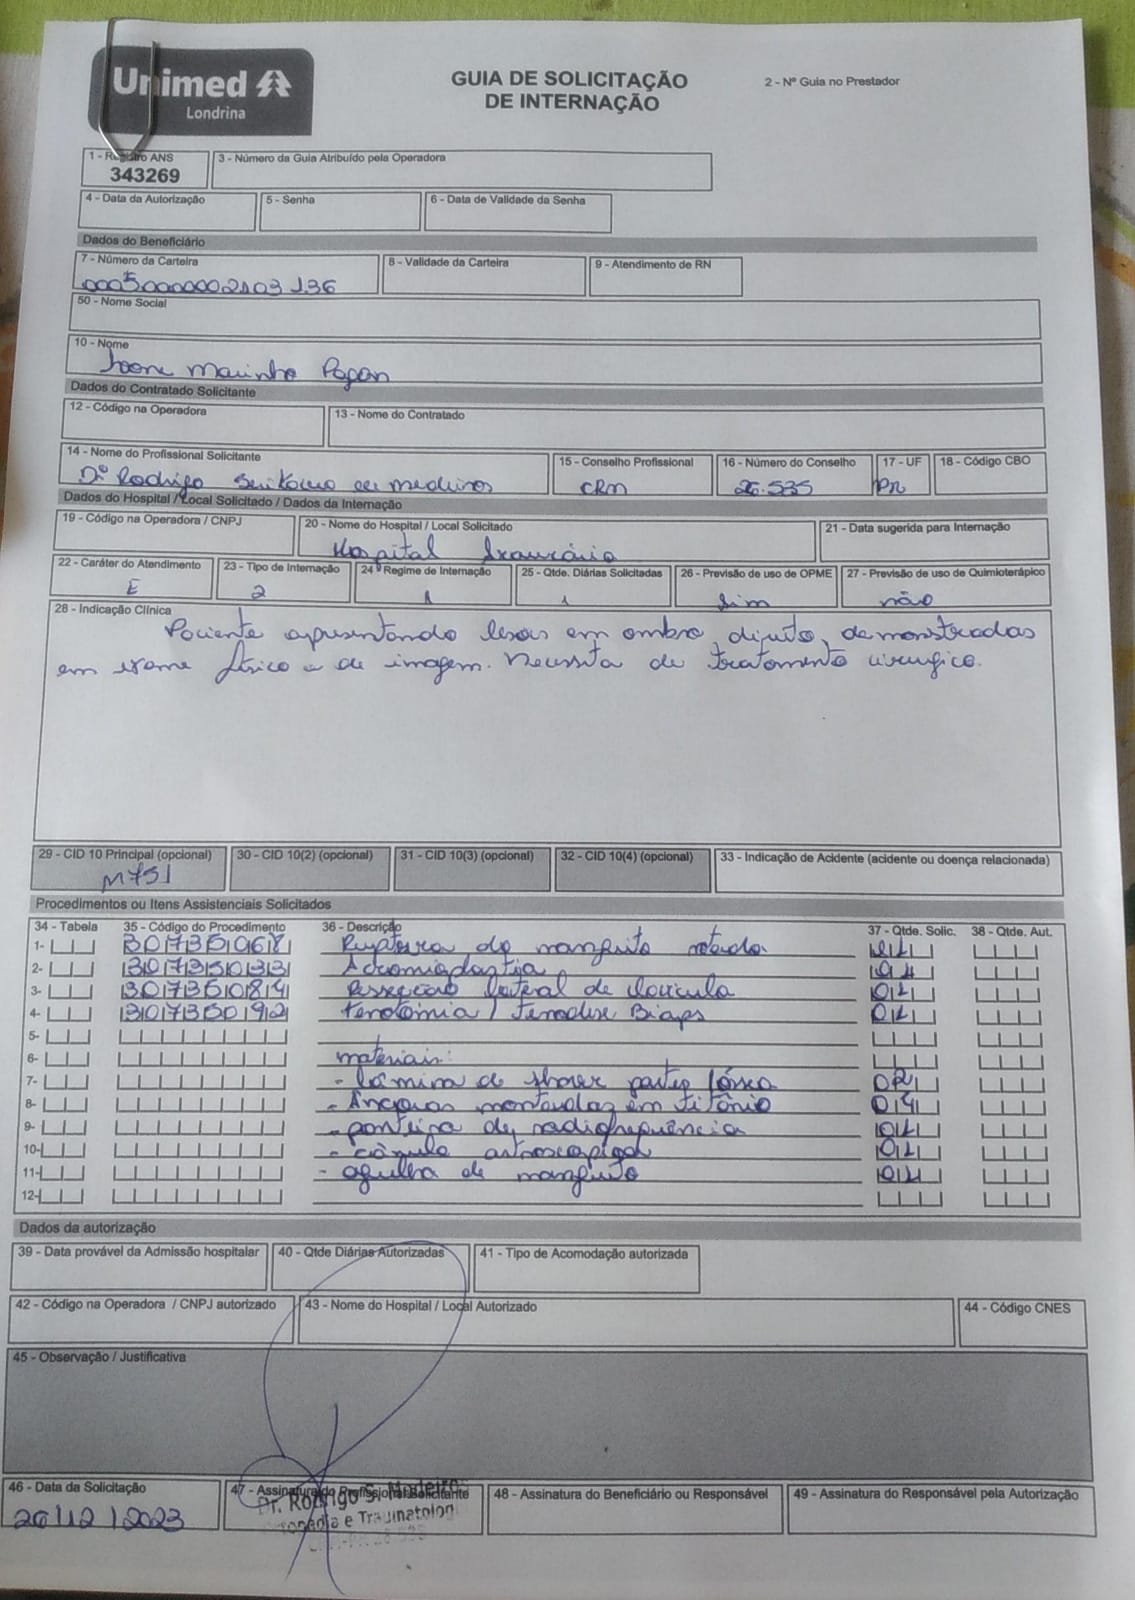 Unimed
Londrina
GUIA DE SOLICITAÇÃO
DE INTERNAÇÃO
2 - Nº Guia no Prestador
1 - Registro ANS
343269
3 - Número da Guia Atribuído pela Operadora
4 - Data da Autorização
5 - Senha
6 - Data de Validade da Senha
Dados do Beneficiário
7 - Número da Carteira
8 - Validade da Carteira
9 - Atendimento de RN
50 - Nome Social
10 - Nome
Marinho
Dados do Contratado Solicitante
12 - Código na Operadora
13 - Nome do Contratado
14 - Nome do Profissional Solicitante
Dr Rodrigo de medeiros
15 - Conselho Profissional
CRM
16 - Número do Conselho
26.535
17 - UF
PR
18 - Código CBO
Dados do Hospital / Local Solicitado / Dados da Internação
19 - Código na Operadora / CNPJ
20 - Nome do Hospital / Local Solicitado
Hospital
21 - Data sugerida para Internação
22 - Caráter do Atendimento
E
23 - Tipo de Internação
2
24 - Regime de Internação
1
25 - Qtde. Diárias Solicitadas
1
26 - Previsão de uso de OPME
Sim
27 - Previsão de uso de Quimioterápico
não
28 - Indicação Clínica
Paciente apresentando lesões em ombro direito, demonstradas
em exame físico e de imagem. Necessita de tratamento cirurgico.
29 - CID 10 Principal (opcional)
M751
30 - CID 10(2) (opcional)
31 - CID 10(3) (opcional)
32 - CID 10(4) (opcional)
33 - Indicação de Acidente (acidente ou doença relacionada)
Procedimentos ou Itens Assistenciais Solicitados
34 - Tabela 35 - Código do Procedimento 36 - Descrição 37 - Qtde. Solic. 38 - Qtde. Aut.
1- 30735068 Ruptura do manguito rotador 01
2- 30735033 Acromioplastia 01
3- 30735084 Ressecção lateral de clavicula 01
4- 30735092 Tenotomia / Tenodese Biceps 01
5-
6- materiais:
7- - lâmina de shaver partes /óssea 02
8- - Âncoras montadas em titânio 04
9- - ponteira de radiofrequência 01
10- - cânula artroscopica 01
11- - agulha de manguito 01
12-
Dados da autorização
39 - Data provável da Admissão hospitalar
40 - Qtde Diárias Autorizadas
41 - Tipo de Acomodação autorizada
42 - Código na Operadora / CNPJ autorizado
43 - Nome do Hospital / Local Autorizado
44 - Código CNES
45 - Observação / Justificativa
46 - Data da Solicitação
20/12/2023
47 - Assinatura do Profissional Solicitante
Dr. Rodrigo S. Medeiros
Ortopedia e Traumatologia
48 - Assinatura do Beneficiário ou Responsável
49 - Assinatura do Responsável pela Autorização